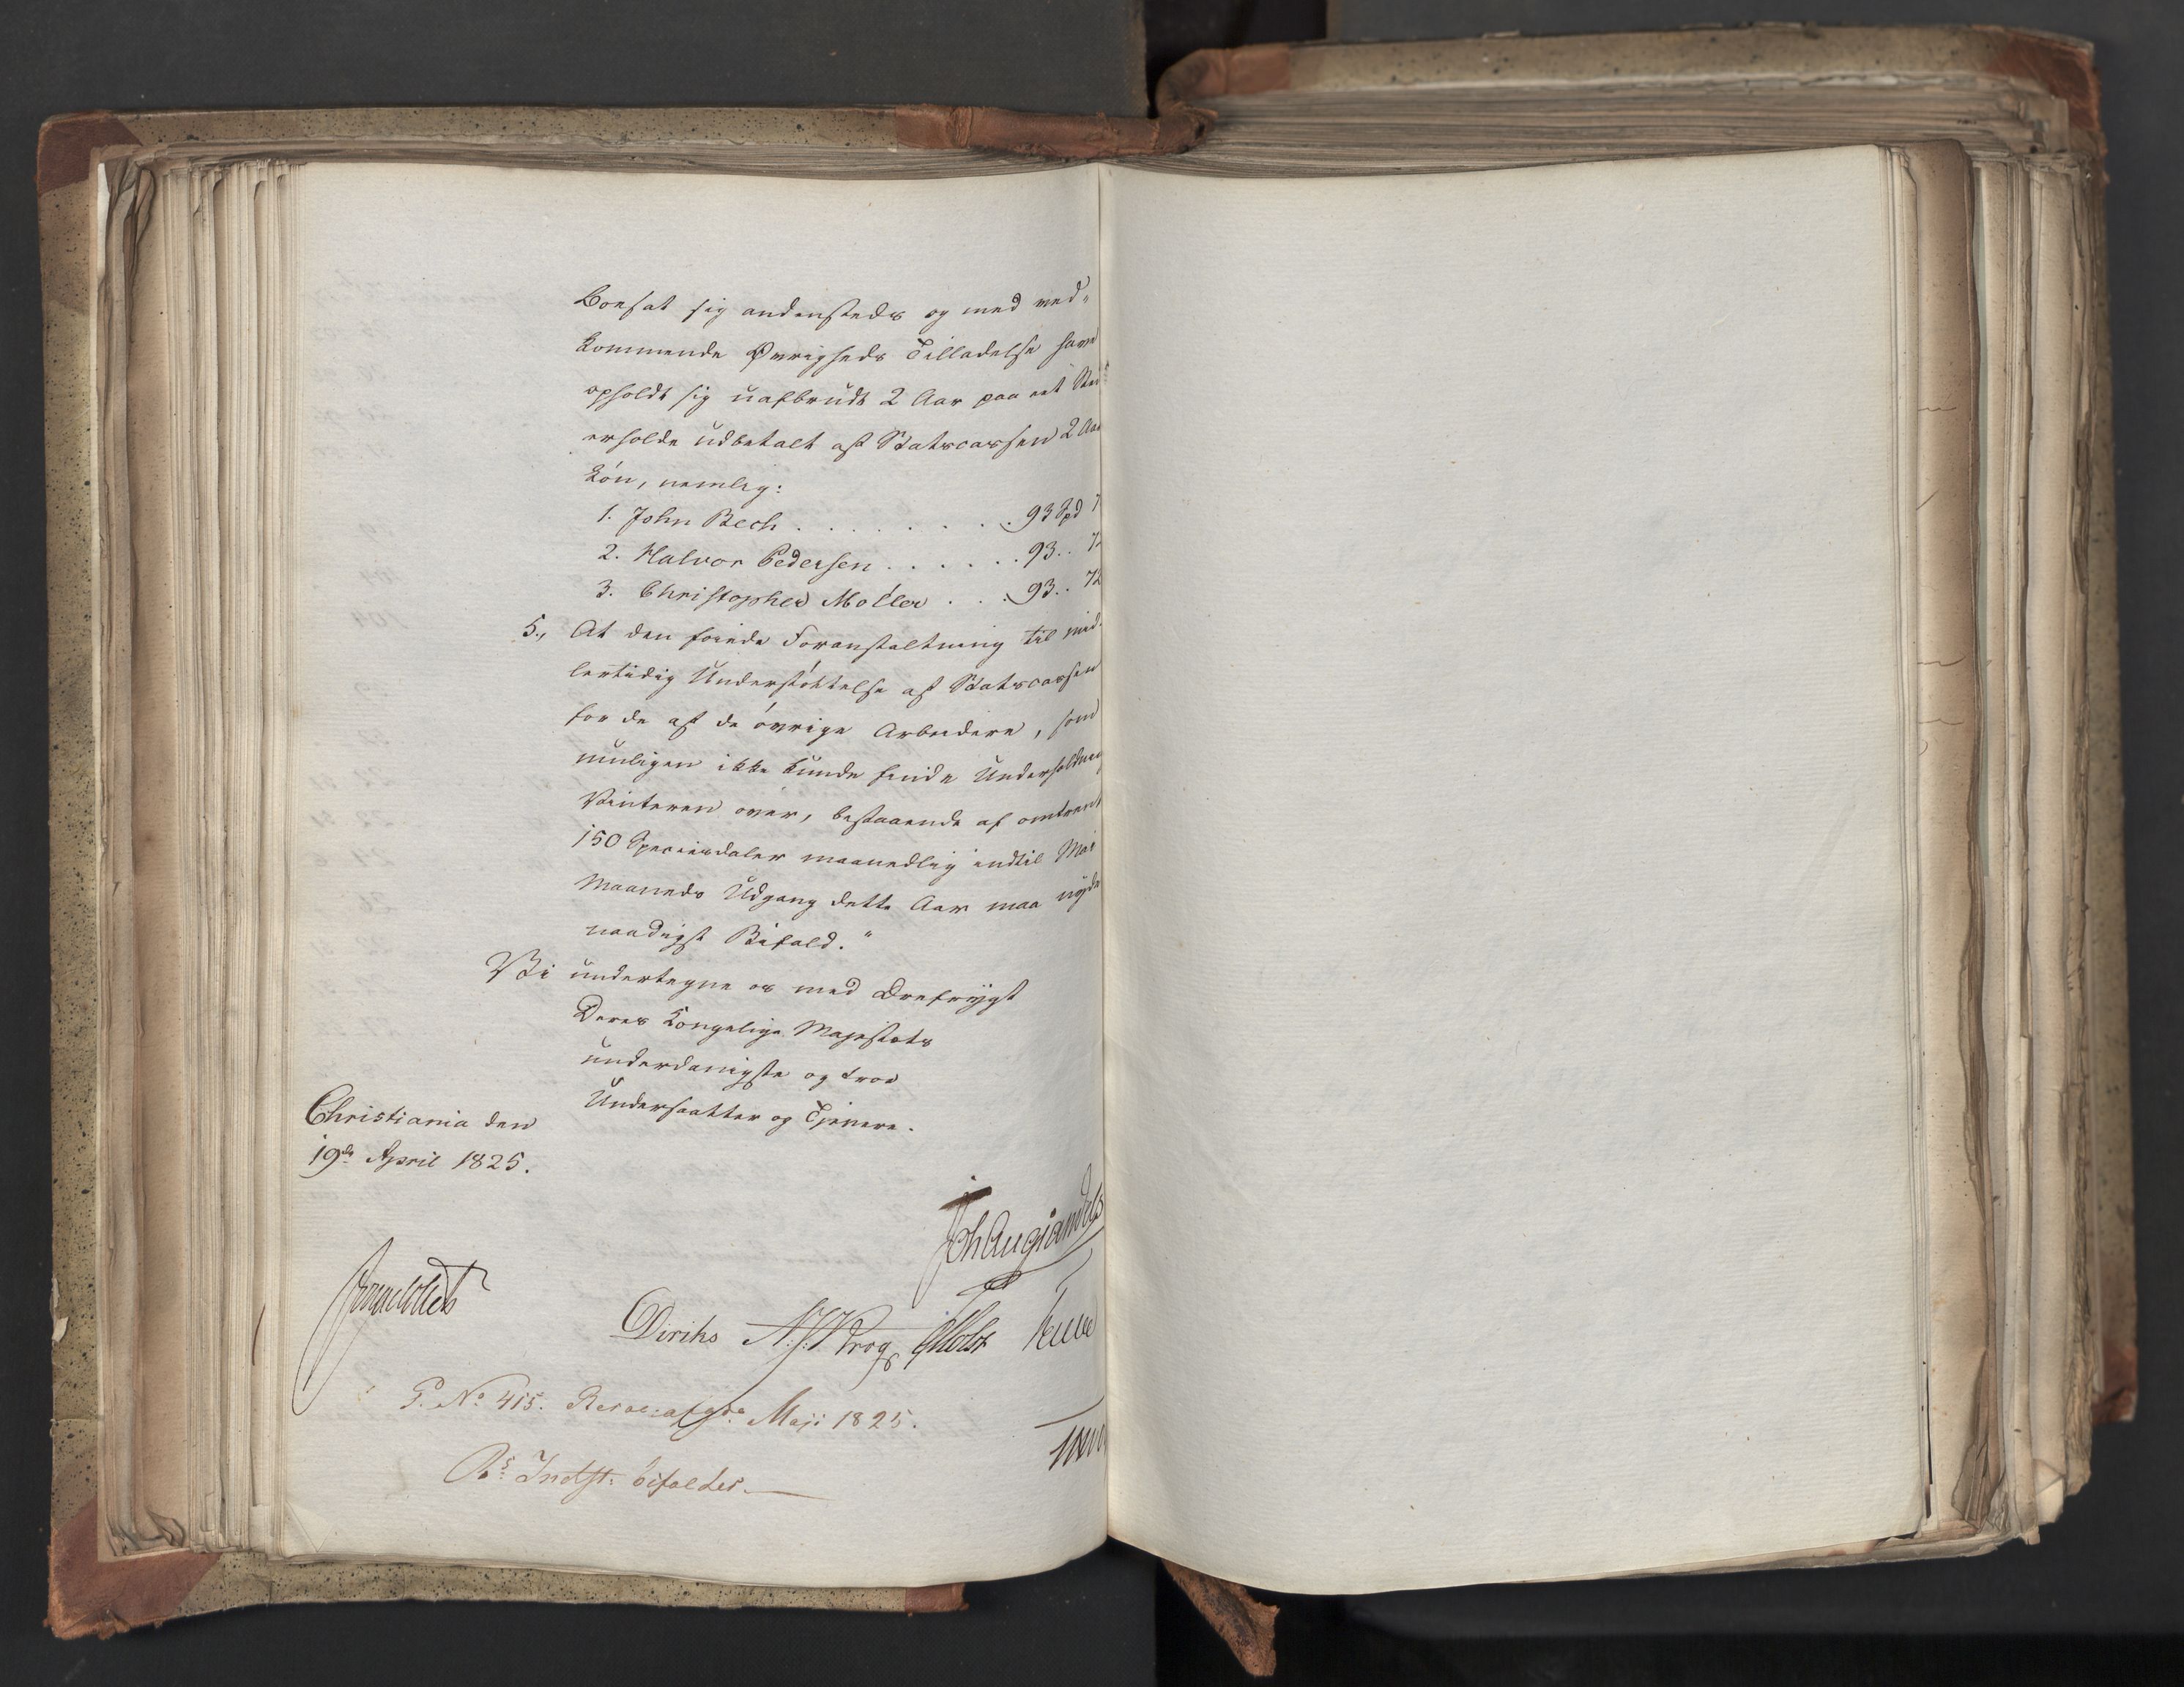 bosat sig andensteds og med ved-
kommende Øvrigheds Tilladelse have
opholdt sig uafbrudt 2 Aar paa eet Sted
erholde udbetalt af Statscassen 2 Aars
Løn, nemlig:
1. John Bech . . . . . . . . 93 Spd 7
2. Halvor Pedersen . . . . . . 93 .. 72
3. Christopher Møller . . . 93 .. 72
5., At den føiede Foranstaltning til mid-
lertidig Understøttelse af Statscassen
for de af de øvrige Arbeidere, som
muligen ikke kunde finde Underholdning
Vinteren over, bestaaende af omtrent
150 Speciesdaler maanedlig indtil Mai
Maaneds Udgang dette Aar maa nyde
naadigst Bifald."
Vi undertegne os med Ærefrygt
Deres Kongelige Majestæts
underdanigste og troe
Undersaatter og Tjenere.
Christiania den
19de April 1825.
Joh Aug Sandels
Jonas Collett
Diriks N. J. Krog Holst
P. No 415. Resol: af Maji 1825.
Rs Indst: bifaldes.